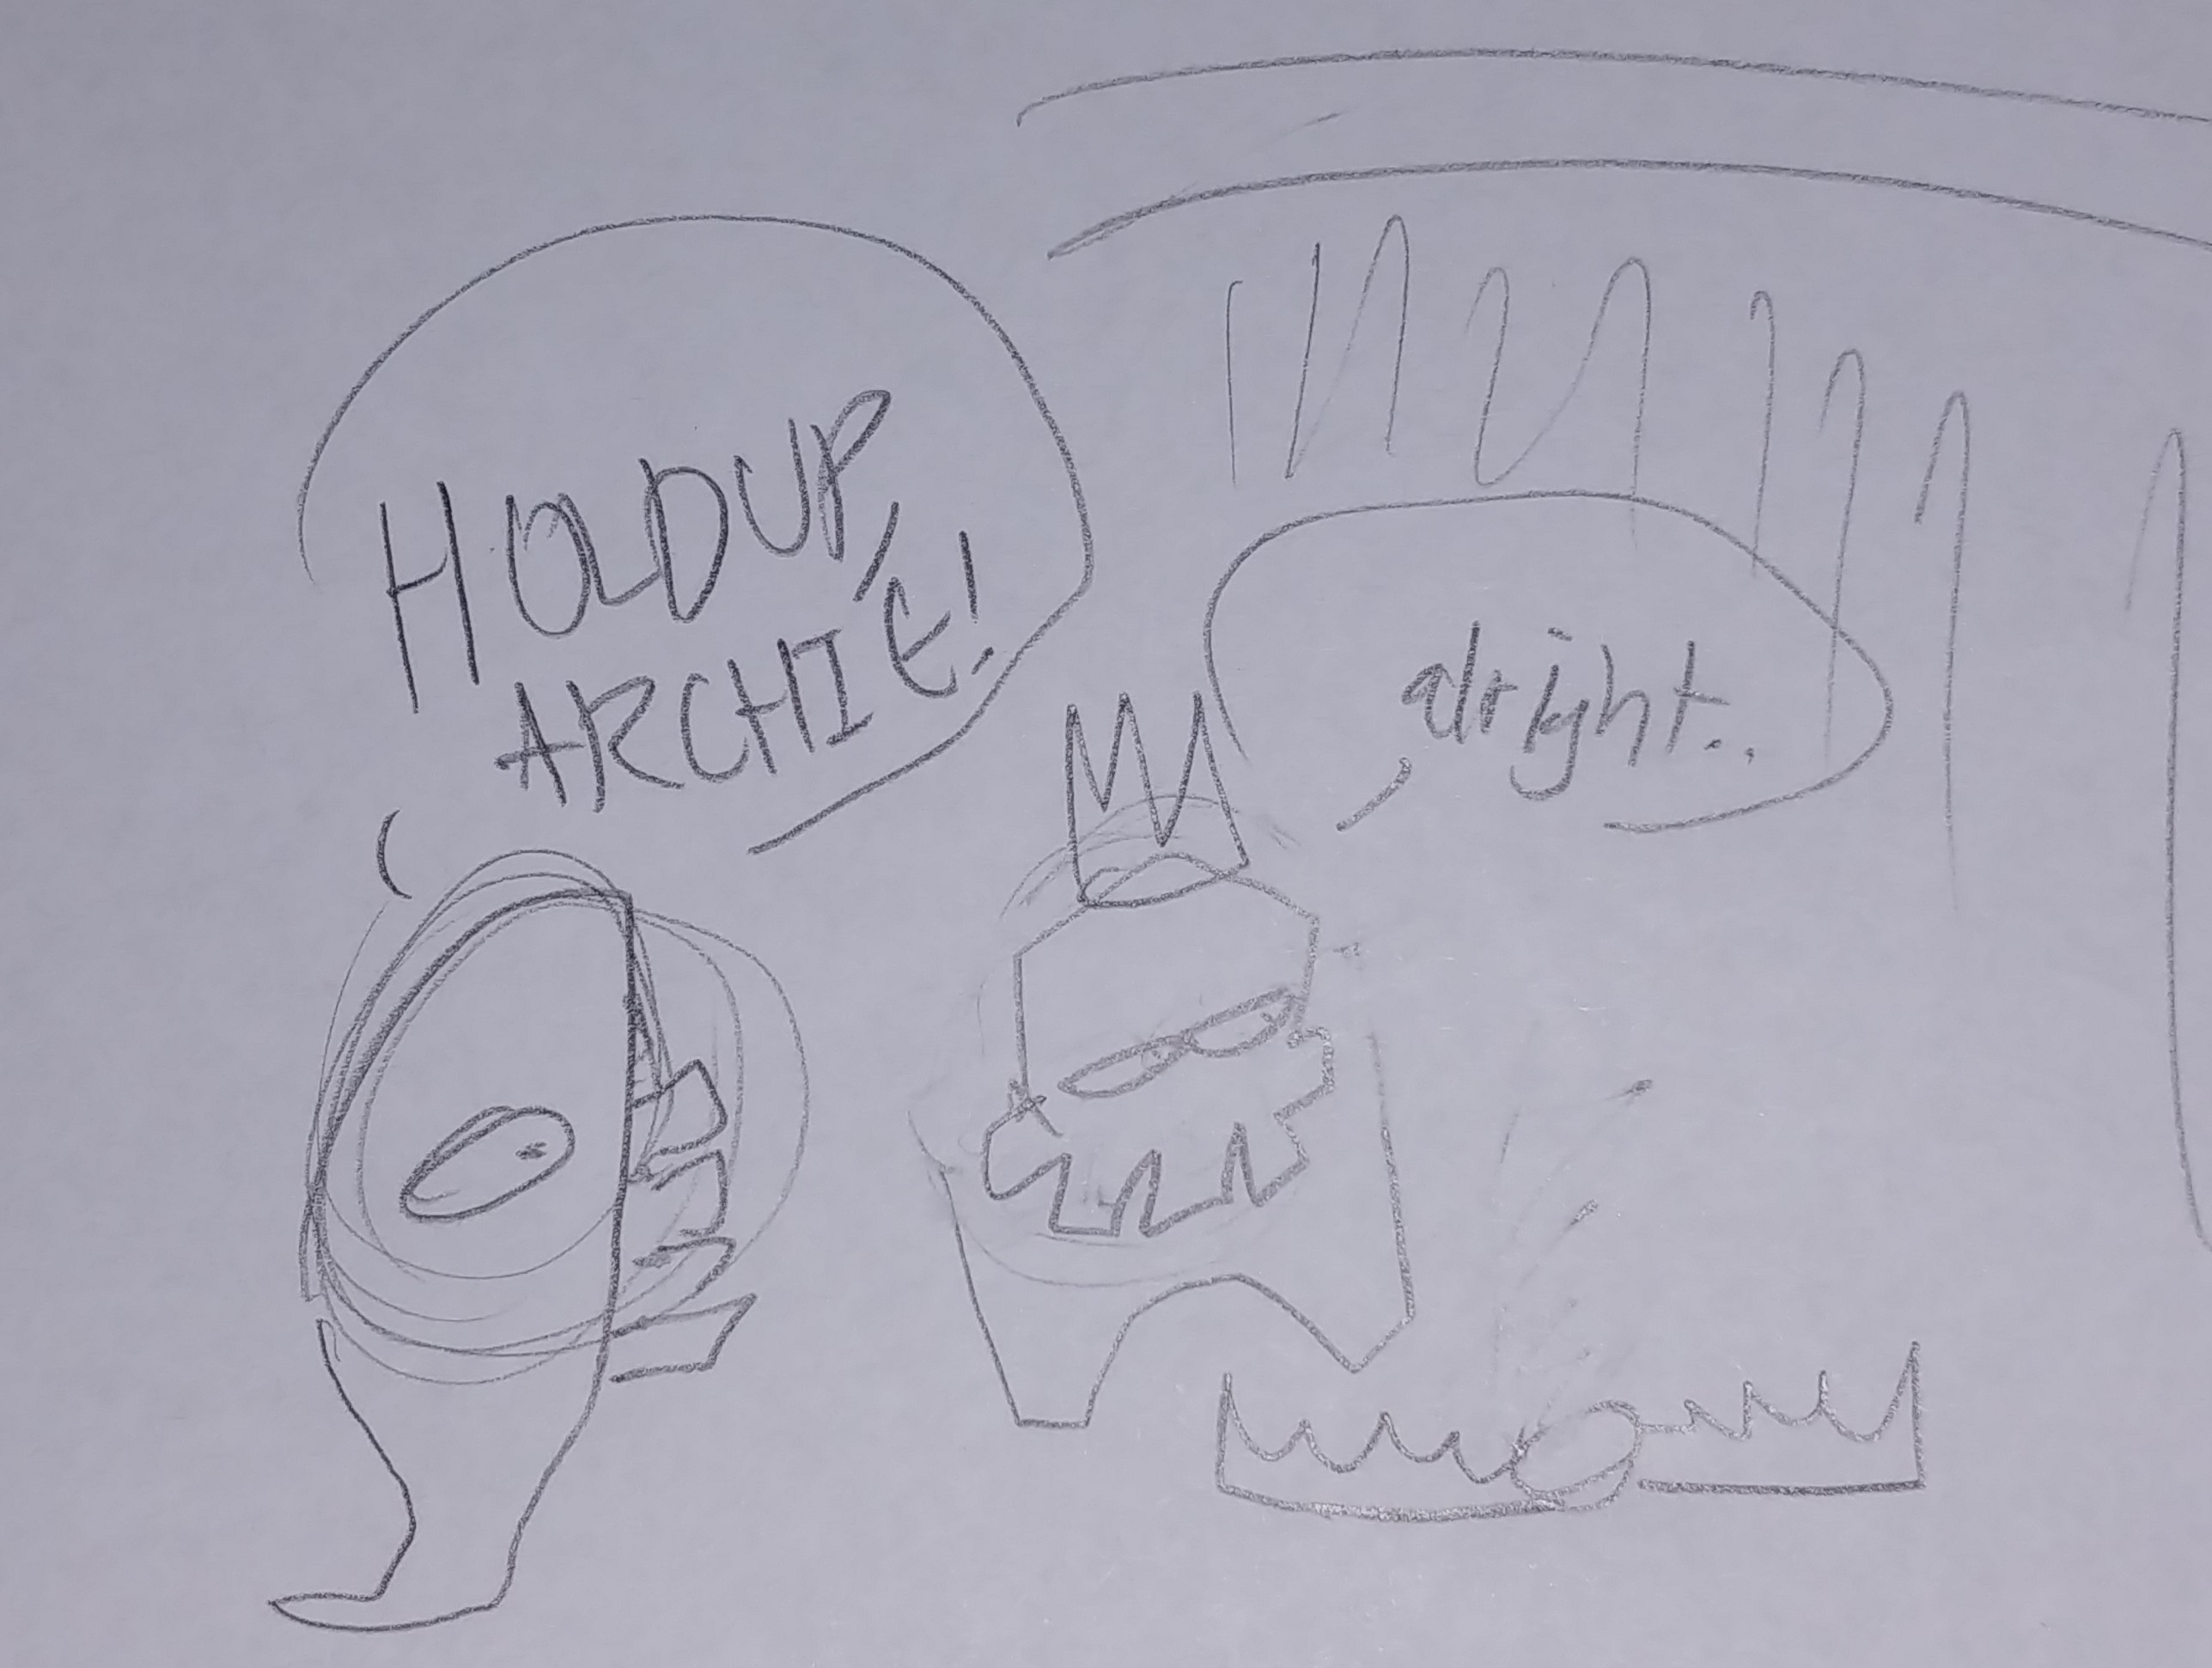 HOLD UP,
ARCHIE!
alright..